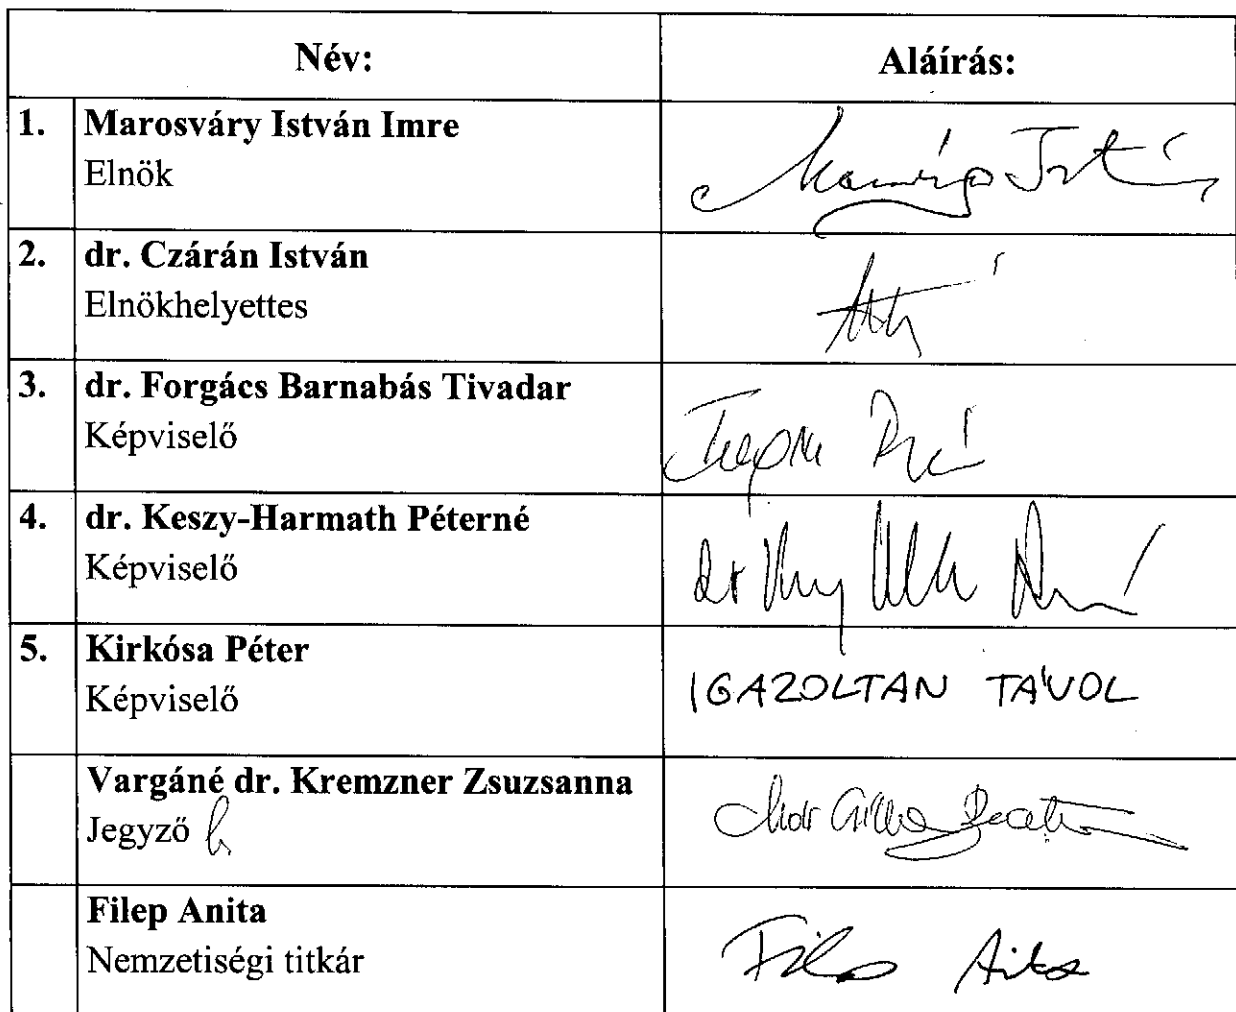 Név: Aláírás:
1. Marosváry István Imre
Elnök
2. dr. Czárán István
Elnökhelyettes
3. dr. Forgács Barnabás Tivadar
Képviselő
4. dr. Keszy-Harmath Péterné
Képviselő
5. Kirkósa Péter
Képviselő
IGAZOLTAN TÁVOL
Vargáné dr. Kremzner Zsuzsanna
Jegyző
Filep Anita
Nemzetiségi titkár